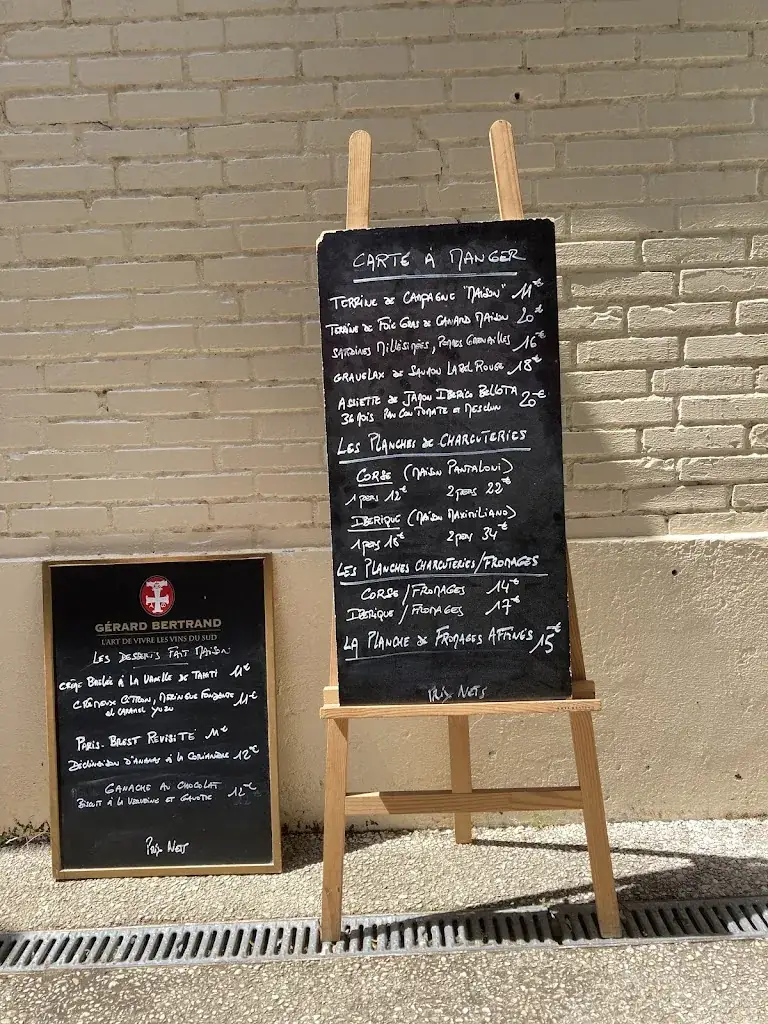 CARTE À MANGER
TERRINE DE CAMPAGNE "MAISON" 11€
TERRINE DE FOIE GRAS DE CANARD MAISON 20€
SARDINES MILLÉSIMÉES, POMMES GRENAILLES 16€
GRAVELAX DE SAUMON LABEL ROUGE 18€
ASSIETTE DE JAMON IBERICO BELLOTA
36 MOIS PAN CON TOMATE ET MESCLUN 20€
LES PLANCHES DE CHARCUTERIES
CORSE (MAISON PANTALONI)
1 pers 12€ 2 pers 22€
IBERIQUE (MAISON MAXIMILIANO)
1 pers 18€ 2 pers 34€
LES PLANCHES CHARCUTERIES/FROMAGES
CORSE/FROMAGES 14€
IBERIQUE/FROMAGES 17€
LA PLANCHE DE FROMAGES AFFINÉS 15€
PRIX NETS
GÉRARD BERTRAND
L'ART DE VIVRE LES VINS DU SUD
LES DESSERTS FAIT MAISON
CRÈME BRÛLÉE À LA VANILLE DE TAHITI 11€
CRÉMEUX CITRON, MERINGUE FONDANTE 11€
et CARAMEL YUZU
PARIS-BREST REVISITÉ 11€
DÉCLINAISON D'ANANAS À LA CORIANDRE 12€
GANACHE AU CHOCOLAT 12€
BISCUIT À LA VERVEINE ET GAVOTTE
PRIX NETS